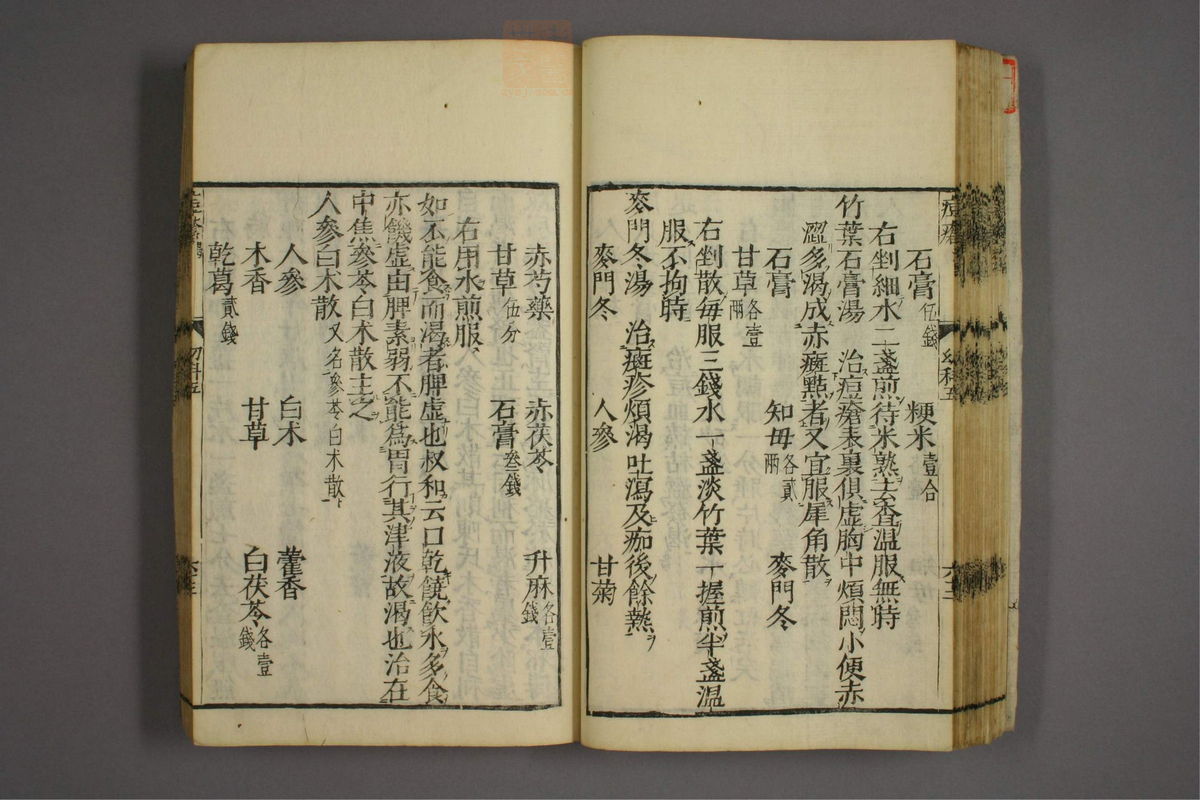 石膏伍錢 粳米壹合
右剉細水二盞煎待米熟去査温服無時
竹葉石膏湯 治痘瘡表裏俱虛胸中煩悶小便赤
澀多渴成赤癍點者又宜服犀角散
石膏 知母各貳兩 麥門冬
甘草各壹兩
右剉散每服三錢水一盞淡竹葉一握煎半盞温
服不拘時
麥門冬湯 治癍疹煩渴吐瀉及痂後餘熱
麥門冬 人參 甘菊
赤芍藥 赤茯苓 升麻各壹錢
甘草伍分 石膏叄錢
右用水煎服
如不能食而渴者脾虛也叔和云口乾饒飲水多食
亦饑虛由脾素弱不能爲胃行其津液故渴也治在
中焦參苓白朮散主之
人參白朮散又名參苓白朮散
人參 白朮 藿香
木香 甘草 白茯苓各壹錢
乾葛貳錢